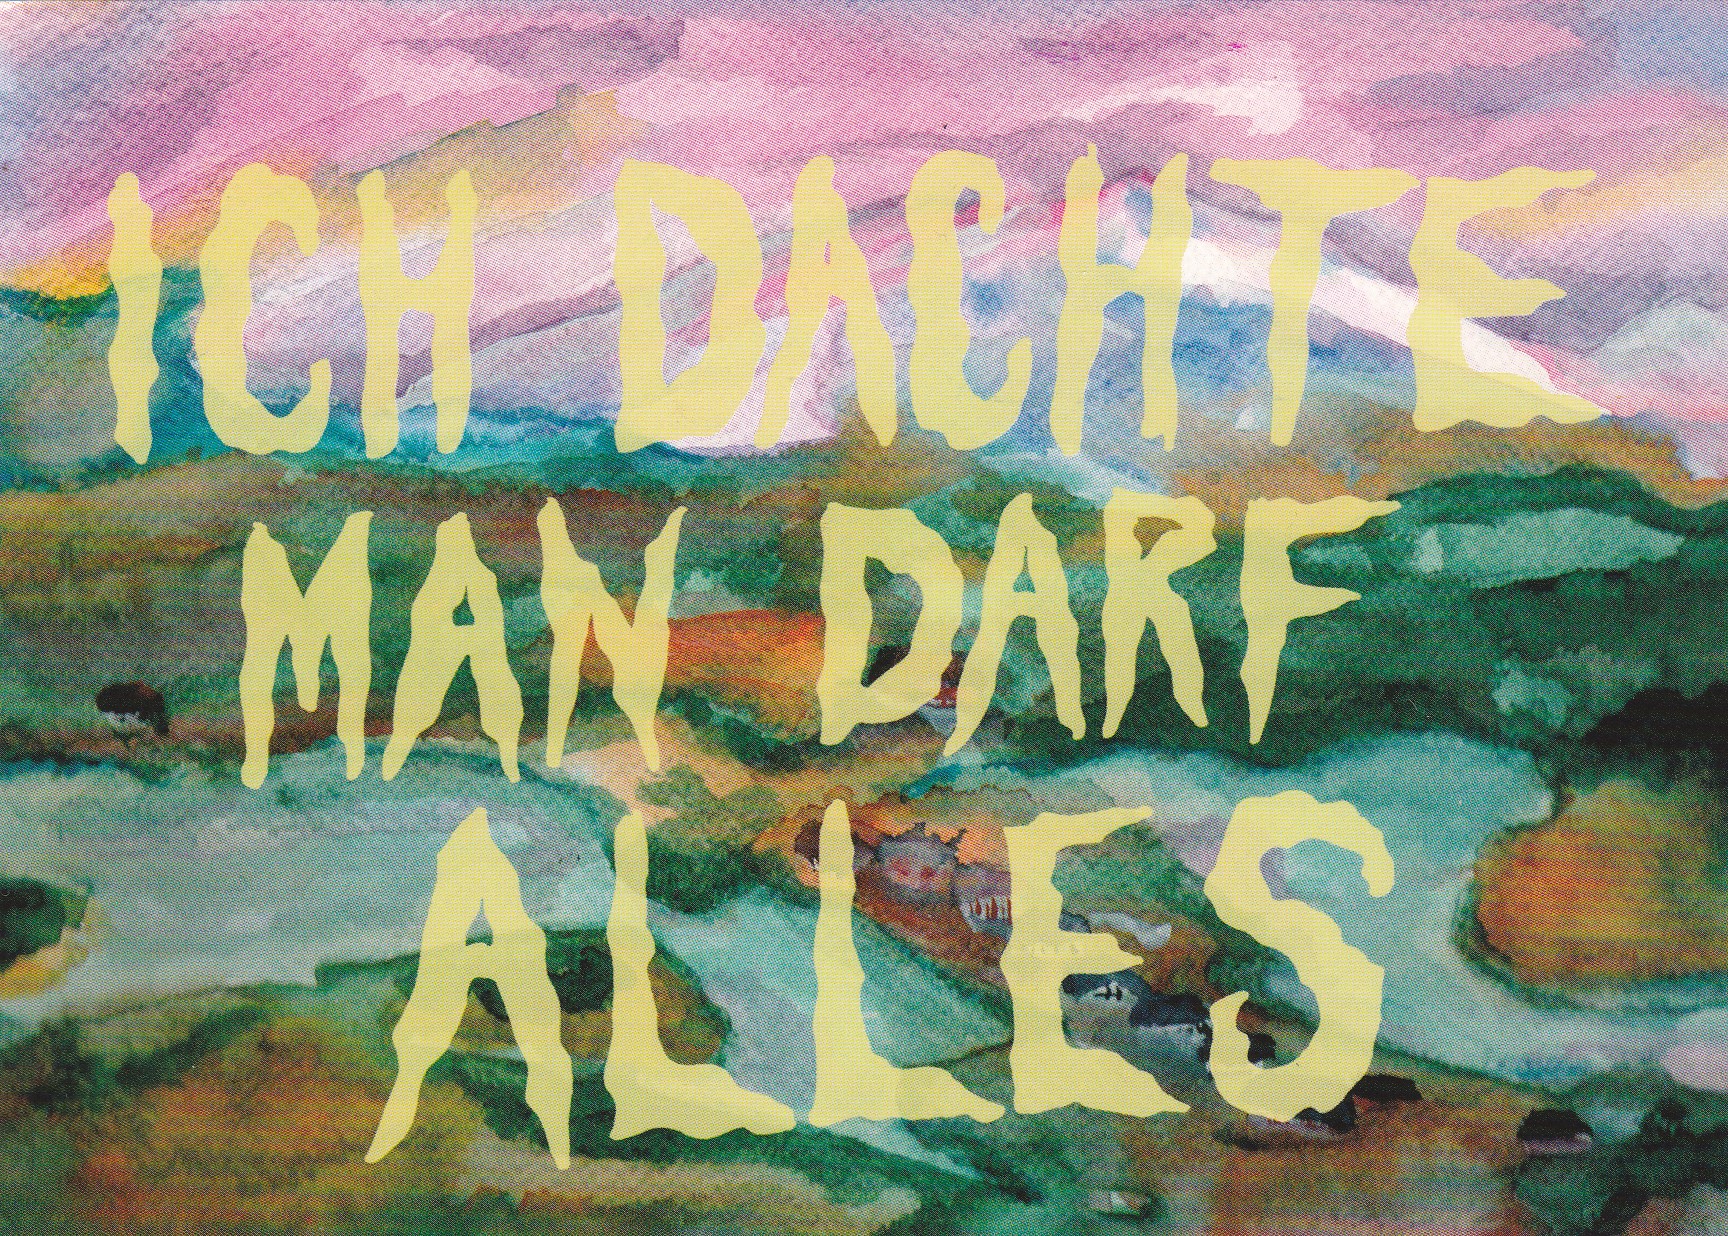 ICH DACHTE
MAN DARF
ALLES